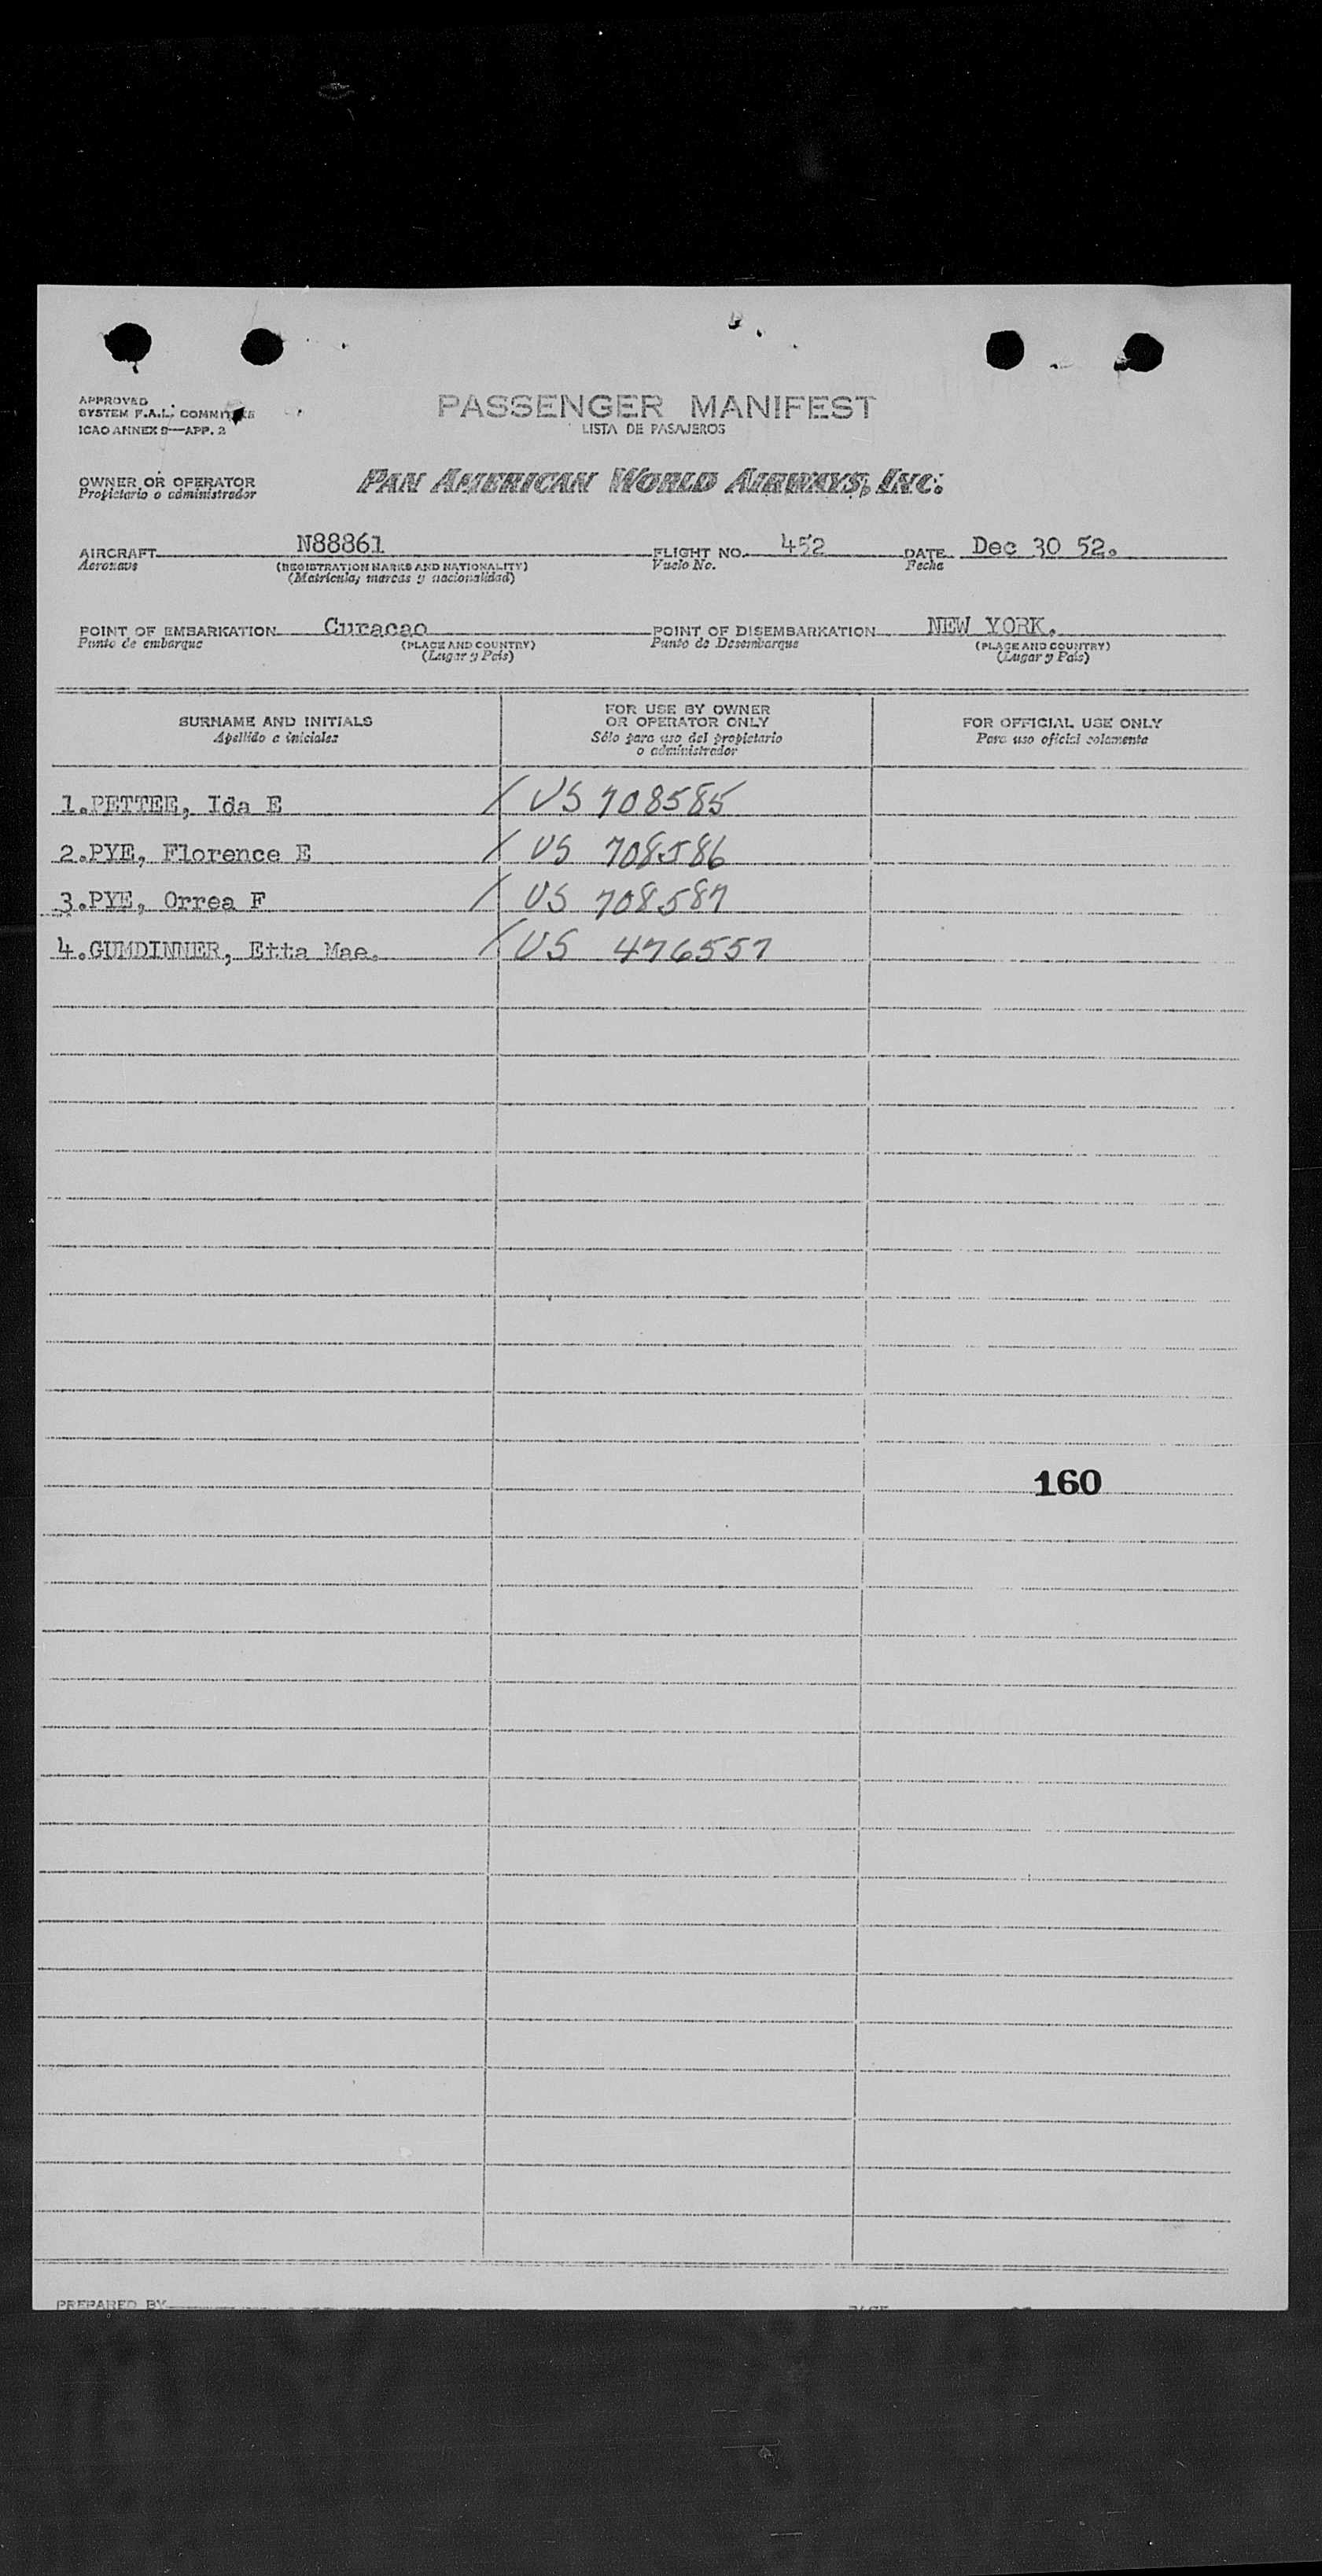 APPROVED
SYSTEM F.A.L. COMMITTEE
ICAO ANNEX 9—APP. 2
PASSENGER MANIFEST
LISTA DE PASAJEROS
OWNER OR OPERATOR
Propietario o administrador
PAN AMERICAN WORLD AIRWAYS, INC.
AIRCRAFT N88861 FLIGHT NO. 452 DATE Dec 30 52.
Aeronave (REGISTRATION MARKS AND NATIONALITY) Vuelo No. Fecha
(Matrícula, marcas y nacionalidad)
POINT OF EMBARKATION Curacao POINT OF DISEMBARKATION NEW YORK.
Punto de embarque (PLACE AND COUNTRY) Punto de Desembarque (PLACE AND COUNTRY)
(Lugar y País) (Lugar y País)
SURNAME AND INITIALS
Apellido e iniciales
FOR USE BY OWNER
OR OPERATOR ONLY
Sólo para uso del propietario
o administrador
FOR OFFICIAL USE ONLY
Para uso oficial solamente
1.PETTEE, Ida E / US 708585
2.PYE, Florence E / US 708586
3.PYE, Orrea F / US 708587
4.GUMDINNER, Etta Mae. / US 476557
160
PREPARED BY